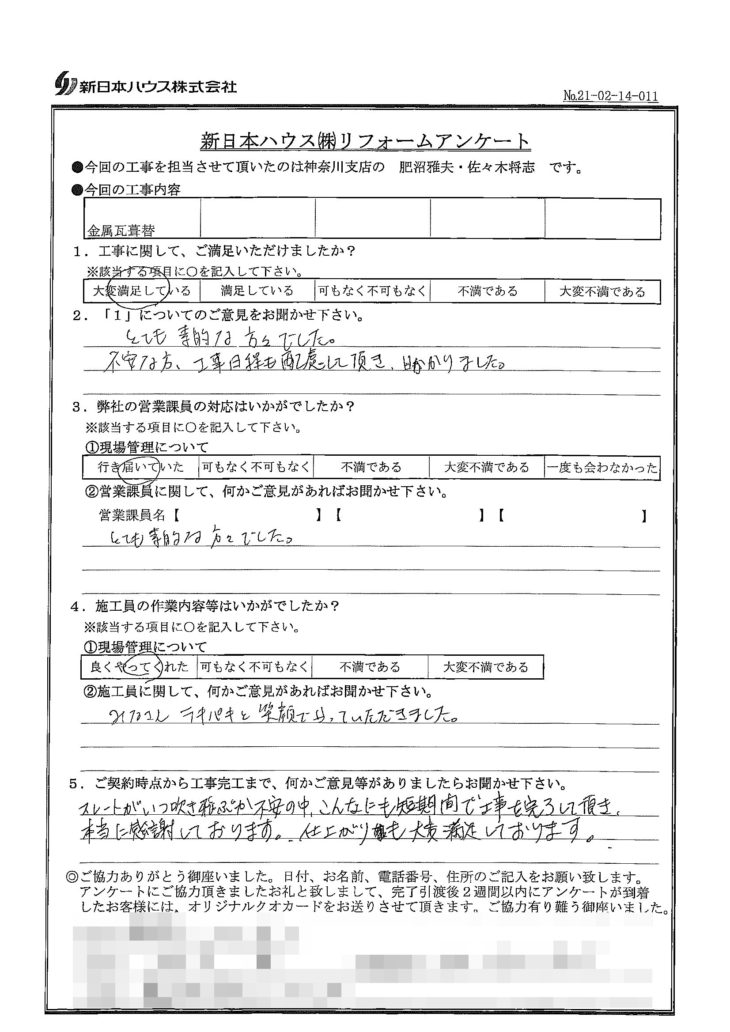 新日本ハウス株式会社
№21-02-14-011
新日本ハウス㈱リフォームアンケート
●今回の工事を担当させて頂いたのは神奈川支店の 肥沼雅夫・佐々木将志 です。
●今回の工事内容
金属瓦葺替
1．工事に関して、ご満足いただけましたか？
※該当する項目に○を記入して下さい。
大変満足している 満足している 可もなく不可もなく 不満である 大変不満である
2．「1」についてのご意見をお聞かせ下さい。
とても素的な方々でした。
不安な方、工事日程も配慮して頂き、助かりました。
3．弊社の営業課員の対応はいかがでしたか？
※該当する項目に○を記入して下さい。
①現場管理について
行き届いていた 可もなく不可もなく 不満である 大変不満である 一度も会わなかった
②営業課員に関して、何かご意見があればお聞かせ下さい。
営業課員名【 】【 】【 】
とても素的な方々でした。
4．施工員の作業内容等はいかがでしたか？
※該当する項目に○を記入して下さい。
①現場管理について
良くやってくれた 可もなく不可もなく 不満である 大変不満である
②施工員に関して、何かご意見があればお聞かせ下さい。
みなさん テキパキと笑顔でやっていただきました。
5．ご契約時点から工事完工まで、何かご意見等がありましたらお聞かせ下さい。
スレートがいつ吹き飛ぶか不安の中、こんなにも短期間で工事を完了して頂き、
本当に感謝しております。仕上がりも大変満足しております。
◎ご協力ありがとう御座いました。日付、お名前、電話番号、住所のご記入をお願い致します。
アンケートにご協力頂きましたお礼と致しまして、完了引渡後２週間以内にアンケートが到着
したお客様には、オリジナルクオカードをお送りさせて頂きます。ご協力有り難う御座いました。